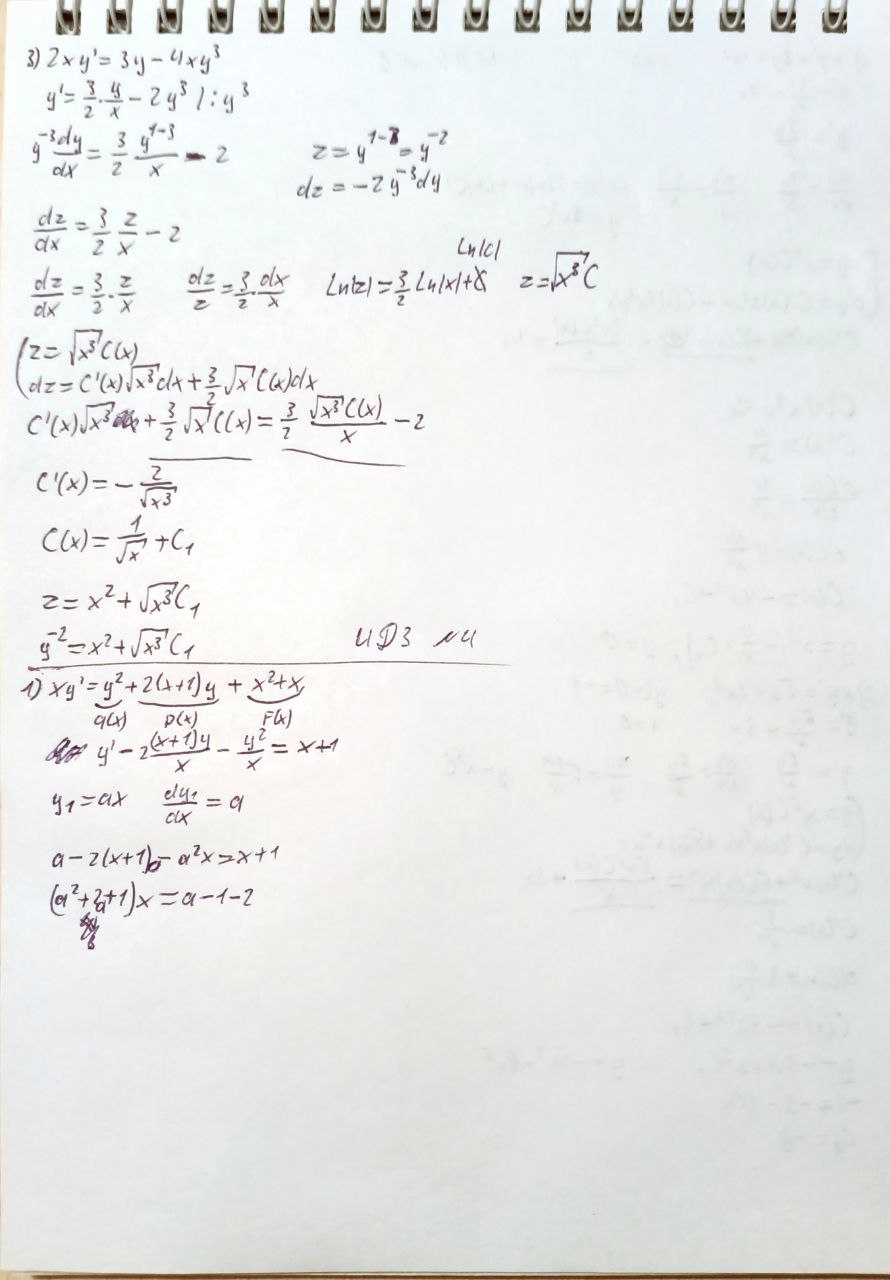 3) 2xy' = 3y - 4xy³
y' = 3/2 · y/x - 2y³ / : y³
y⁻³dy/dx = 3/2 y¹⁻³/x - 2 z = y¹⁻³ = y⁻²
dz = -2y⁻³dy
dz/dx = 3/2 z/x - 2
dz/dx = 3/2 · z/x dz/z = 3/2 · dx/x Ln|z| = 3/2 Ln|x| + Ln|C| z = √x³ C
z = √x³ C(x)
dz = C'(x)√x³ dx + 3/2 √x C(x)dx
C'(x)√x³ + 3/2 √x C(x) = 3/2 √x³ C(x)/x - 2
C'(x) = - 2/√x³
C(x) = 1/√x + C₁
z = x² + √x³ C₁
y⁻² = x² + √x³ C₁ ИДЗ №4
1) xy' = y² + 2(x+1)y + x²+x
q(x) p(x) F(x)
y' - 2(x+1)y/x - y²/x = x+1
y₁ = ax dy₁/dx = a
a - 2(x+1)a - a²x = x+1
(a²+2a+1)x = a-1-2